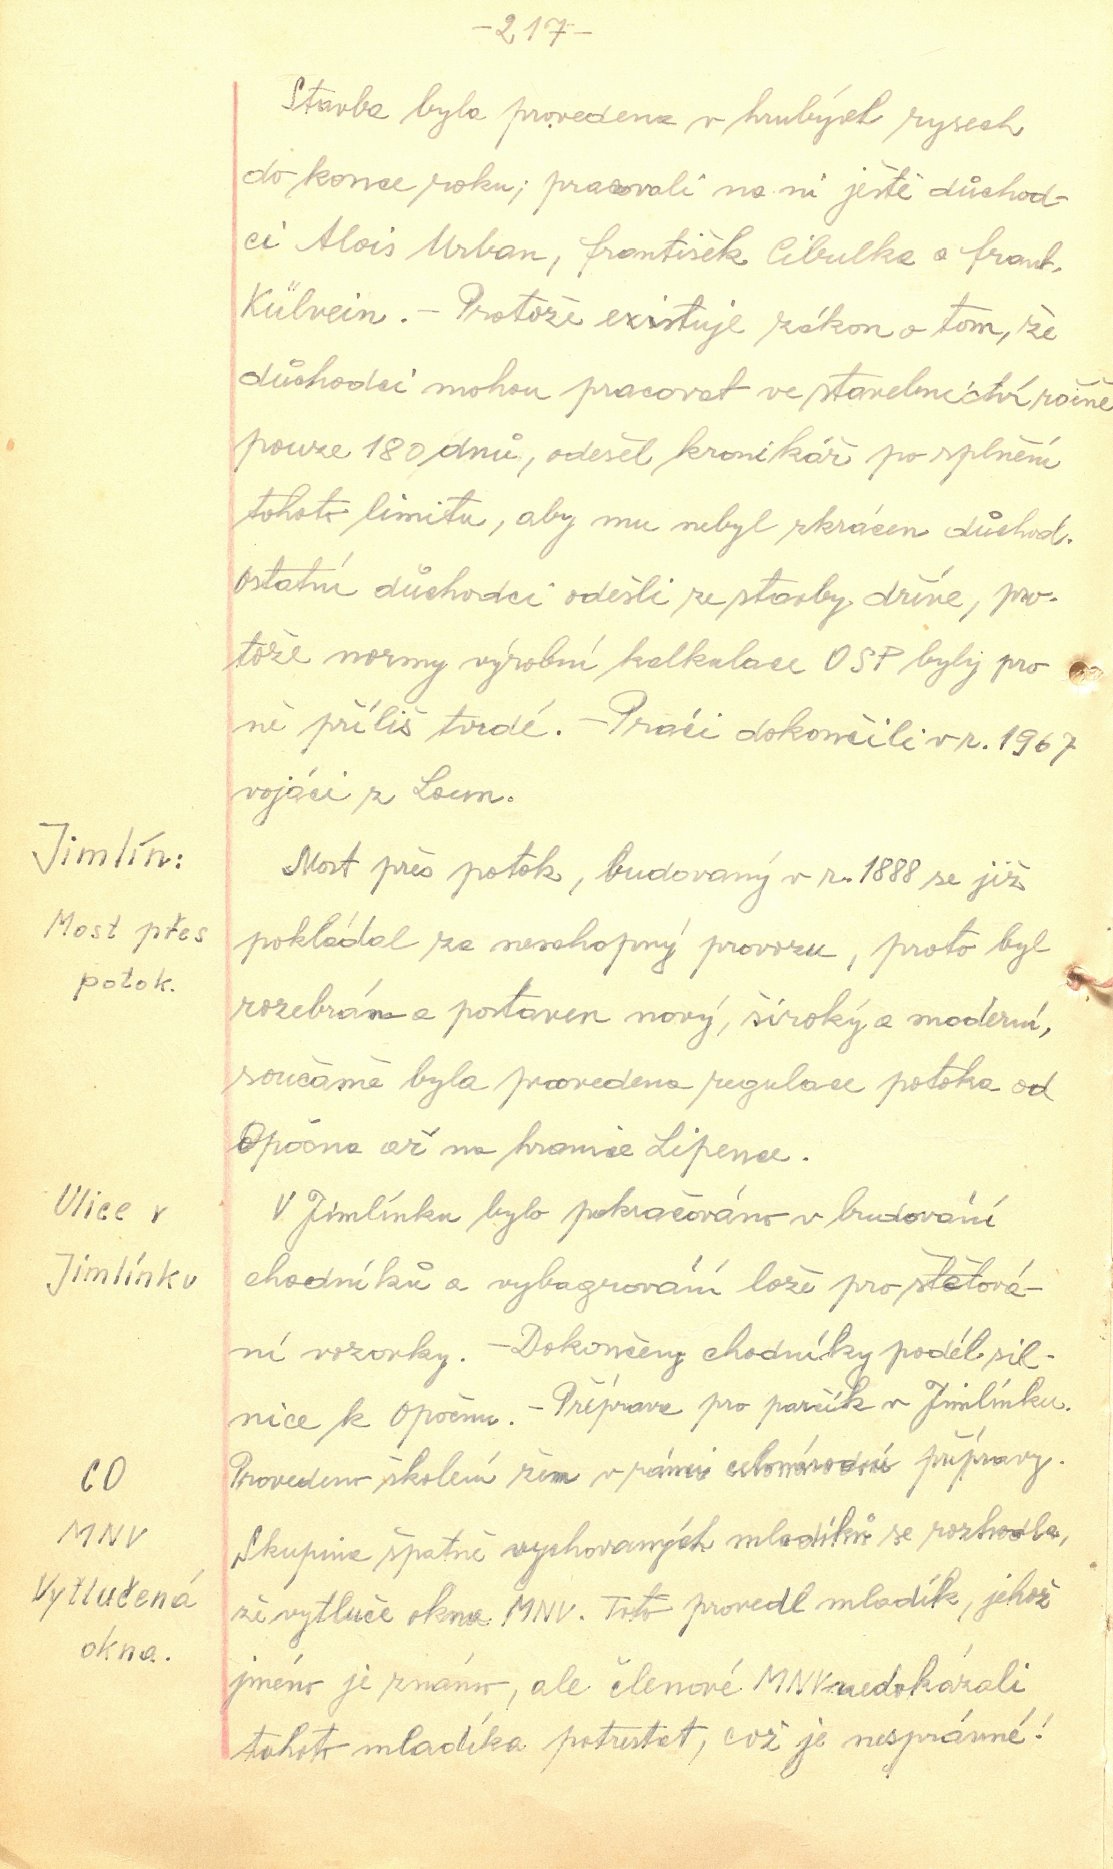 -217-
Stavba byla provedena v hrubých rysech
do konce roku; pracovali na ní ještě důchod-
ci Alois Urban, František Cibulka a Frant.
Külvein. - Protože existuje zákon o tom, že
důchodci mohou pracovat ve stavebnictví ročně
pouze 180 dnů, odešel kronikář po splnění
tohoto limitu, aby mu nebyl zkrácen důchod.
Ostatní důchodci odešli ze stavby dříve, pro-
tože normy výrobní kalkulace OSP byly pro
ně příliš tvrdé. - Práci dokončili v r. 1967
vojáci z Loun.
Jimlín:
Most přes
potok.
Most přes potok, budovaný v r. 1888 se již
pokládal za neschopný provozu, proto byl
rozebrán a postaven nový, široký a moderní,
současně byla provedena regulace potoka od
Opočna až na hranice Lipence.
Ulice v
Jimlínku
V Jimlínku bylo pokračováno v budování
chodníků a vybagrování lože pro štětová-
ní vozovky. - Dokončeny chodníky podél sil-
nice k Opočnu. - Příprava pro parčík v Jimlínku.
CO
Provedeno školení žen v rámci celonárodní přípravy.
MNV
Vytlučená
okna.
Skupina špatně vychovaných mladíků se rozhodla,
že vytluče okna MNV. Toto provedl mladík, jehož
jméno je známo, ale členové MNV nedokázali
tohoto mladíka potrestat, což je nesprávné!